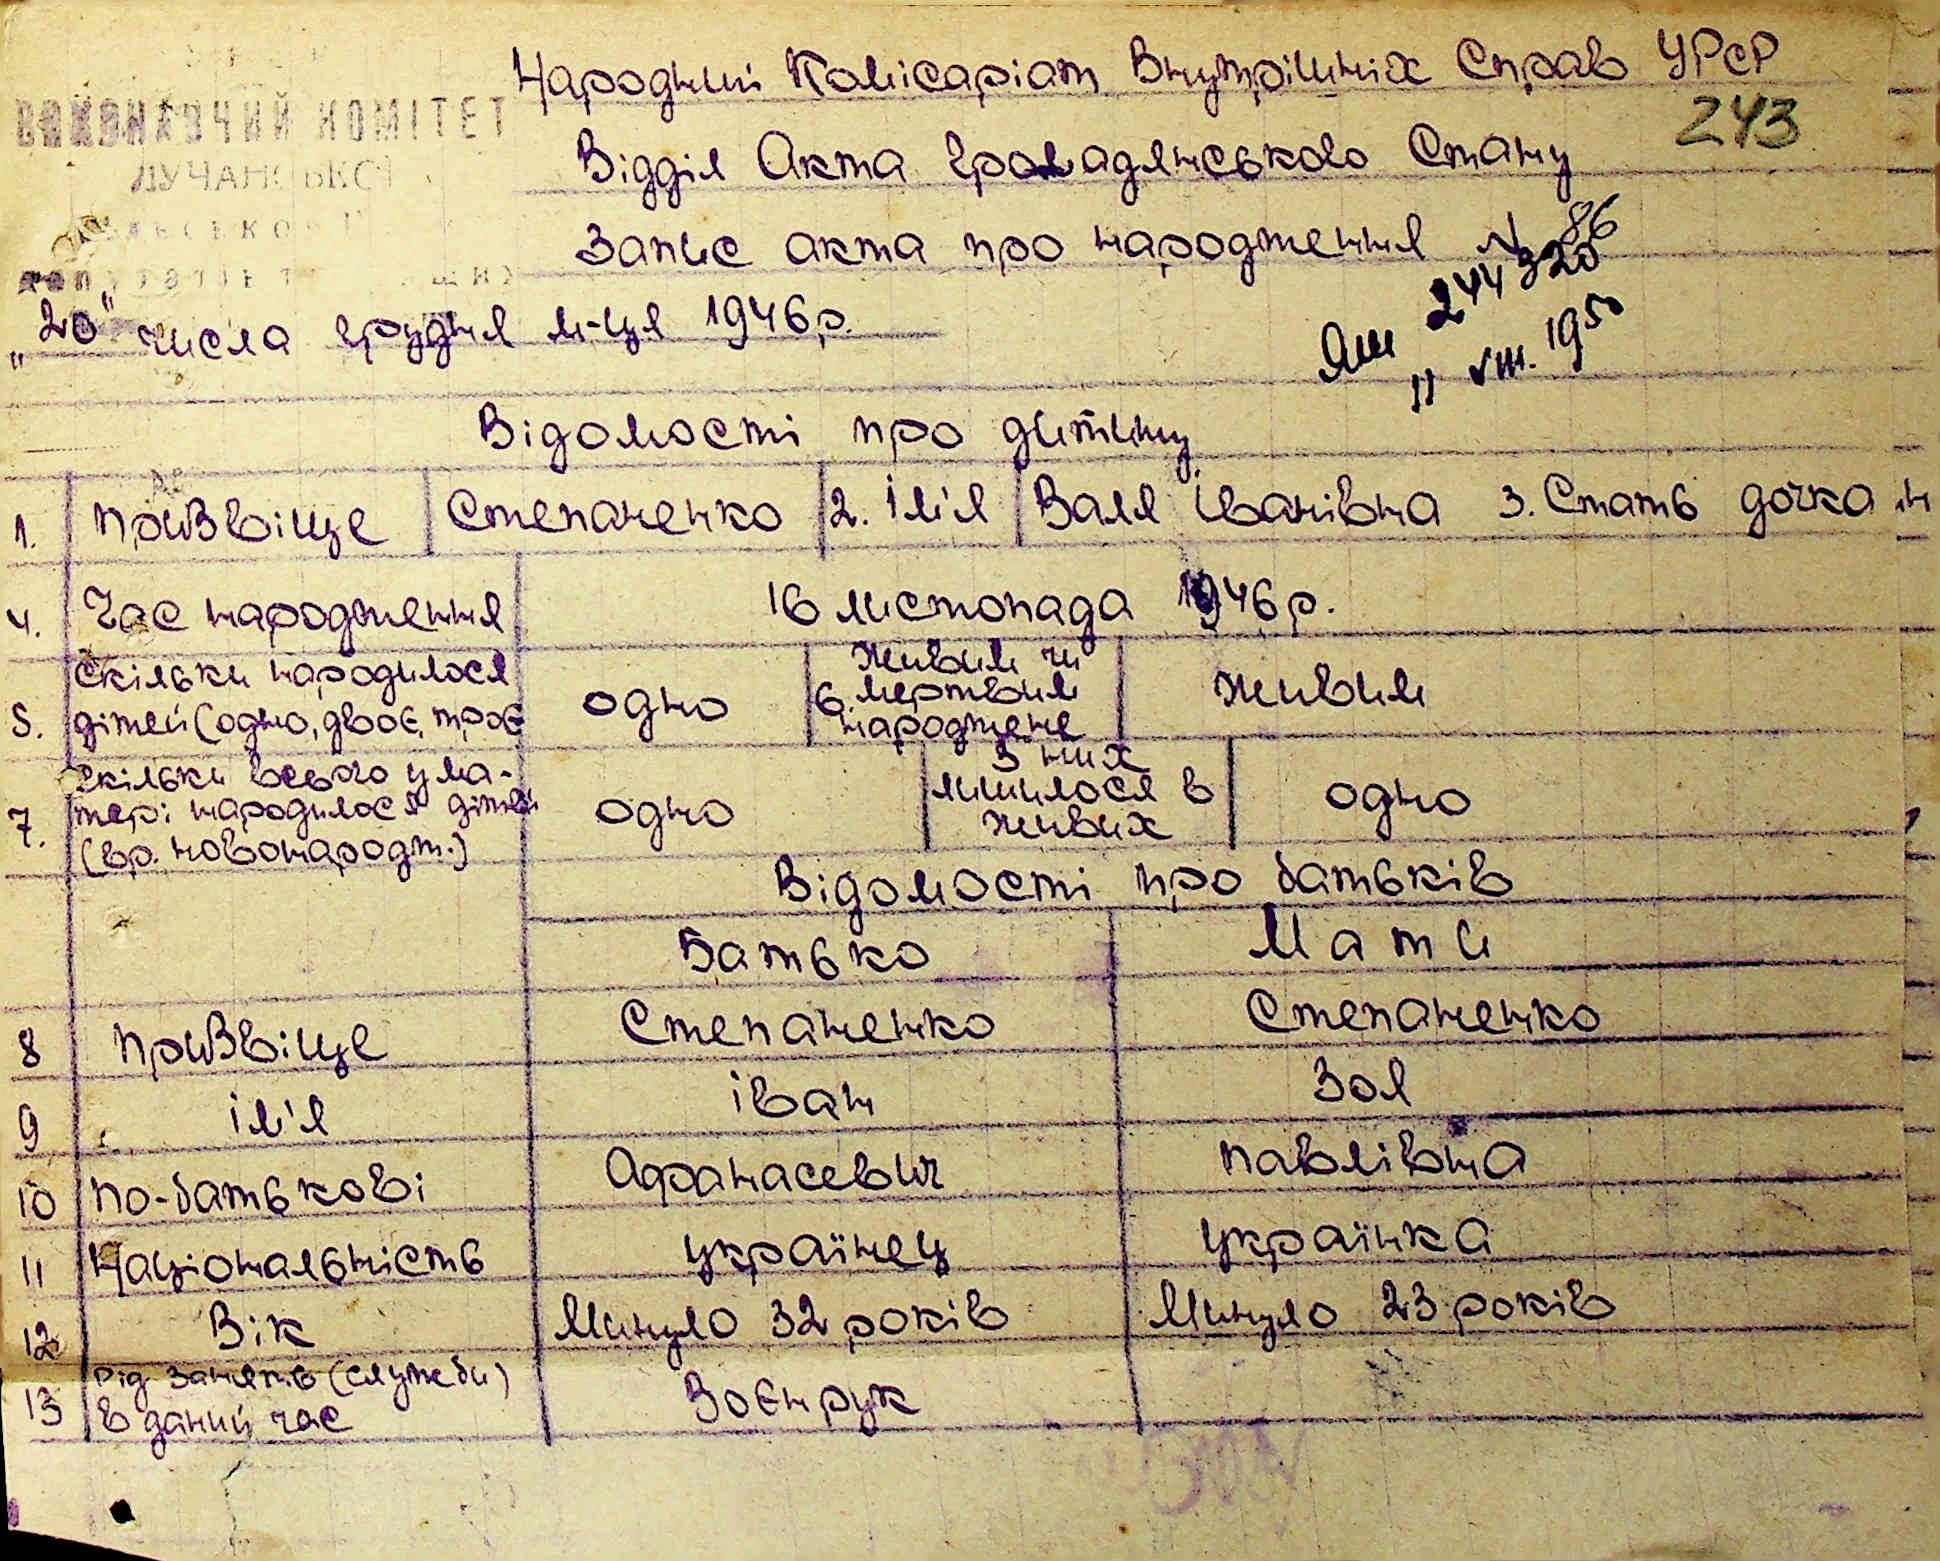 Народний Комісаріат Внутрішніх Справ УРСР
243
ВИКОНАВЧИЙ КОМІТЕТ
ЛУЧАНСЬКОЇ
Відділ Акта Громадянського Стану
Запис акта про народження № 86
„20" числа грудня м-ця 1946р.
244320
11 VIII. 1950
Відомості про дитину
1. Призвіще Степаненко 2. Ім'я Валя Іванівна 3. Стать дочка
4. Час народження 16 листопада 1946р.
5. Скільки народилося дітей (одно, двоє, троє одно 6. Живим чи мертвим народжене живим
7. Скільки всього у матері народилося дітей (вр. новонародж.) одно З них лишилося в живих одно
Відомості про батьків
Батько Мати
8 Призвіще Степаненко Степаненко
9 Ім'я Іван Зоя
10 По-батькові Афанасевич Павлівна
11 Національність українец українка
12 Вік Минуло 32 років Минуло 23 років
13 Рід занять (служби) в даний час Воєнрук